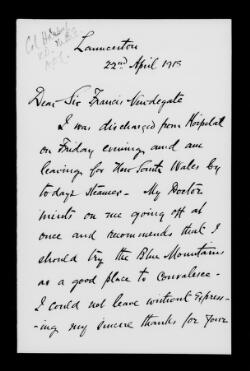 Launceston
22nd April 1918
Dear Sir Francis Newdegate
I was discharged from Hospital
on Friday evening and am
leaving for New South Wales by
to days steamer - My Doctor
insists on me going off at
once and recommends that I
should try the Blue Mountains
as a good place to Convalesce -
I could not leave without Express-
-ing my sincere thanks for your